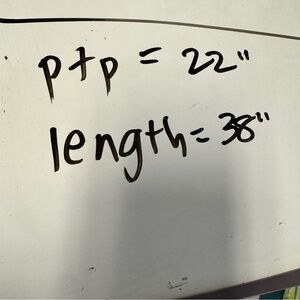 ptp = 22"
length = 38"